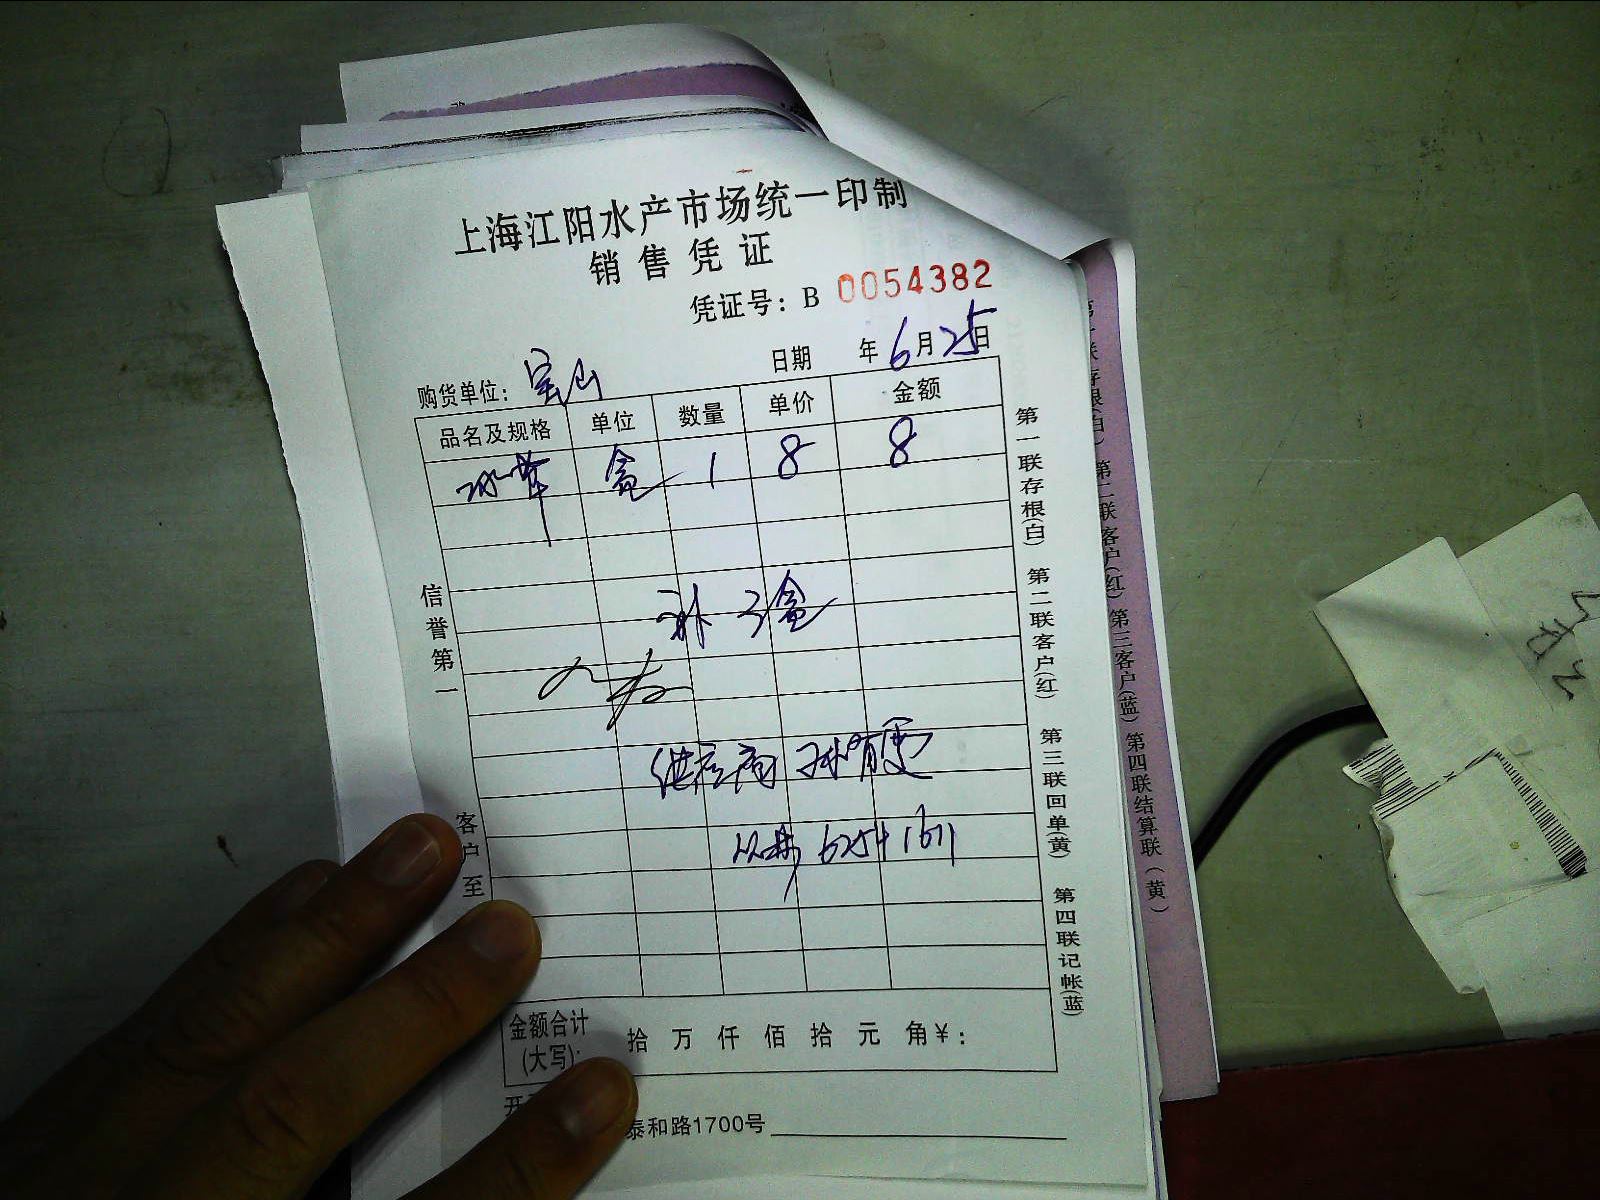 上海江阳水产市场统一印制
销售凭证
凭证号：B 0054382
购货单位：宝山 日期 年6月25日
品名及规格 单位 数量 单价 金额
盒 1 8 8
补 3盒
供应商 孙有更
6254 1611
金额合计(大写)： 拾 万 仟 佰 拾 元 角 ￥：
泰和路1700号
信誉第一
客户至
第一联存根(白) 第二联客户(红) 第三联回单(黄) 第四联记帐(蓝)
第一联存根(白) 第二联客户(红) 第三客户(蓝) 第四联结算联(黄)